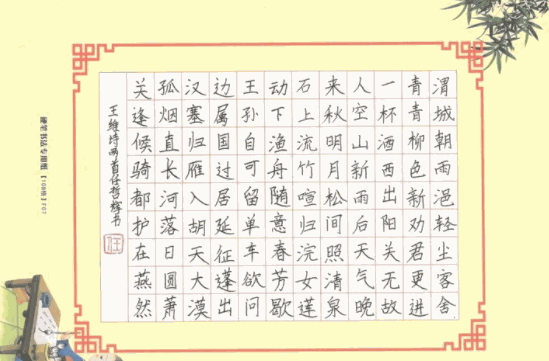 渭城朝雨浥轻尘客舍
青青柳色新劝君更进
一杯酒西出阳关无故
人空山新雨后天气晚
来秋明月松间照清泉
石上流竹喧归浣女莲
动下渔舟随意春芳歇
王孙自可留单车欲问
边属国过居延征蓬出
汉塞归雁入胡天大漠
孤烟直长河落日圆萧
关逢候骑都护在燕然
王维诗两首任哲辉书
任
硬笔书法专用纸【108格】P07